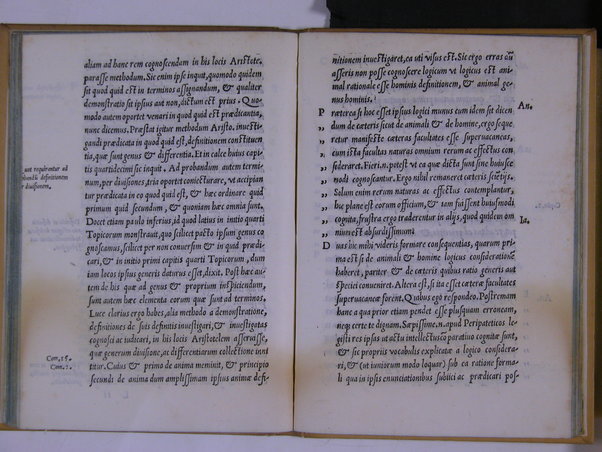 aliam ad hanc rem cognoscendam in his locis Aristote.
parasse methodum. Sic enim ipse inquit, quomodo quidem
sit quod quid est in terminos assignandum, & qualiter
demonstratio sit ipsius aut non, dictum est prius. Quo⸗
modo autem oportet venari in quid est prædicantia,
nunc dicemus. Præstat igitur methodum Aristo. inuesti⸗
gandi prædicata in quod quid est, definitionem constituen
tia, quæ sunt genus & differentia. Et in calce huius capi⸗
tis quartidecimi sic inquit. Ad probandum autem termi⸗
num, per diuisiones, tria oportet coniecturare, vt accipian
tur prædicata in eo quod quid est, & hæc ordinare quid
primum quid secundum, & quoniam hæc omnia sunt.
Docet etiam paulo inferius, id quod latius in initio quarti
Topicorum monstraut, quo scilicet pacto ipsum genus co
gnoscamus, scilicet per non conuersim & in quid prædi⸗
cari, & in initio primi capitis quarti Topicorum, dum
iam locos ipsius generis daturus esset, dixit. Post hæc au⸗
tem de his quæ ad genus & proprium inspiciendum,
sunt autem hæc elementa eorum quæ sunt ad terminos.
Luce clarius ergo habes, alia methodo a demonstratione,
definitiones de suis definitis inuestigari, & inuestigatas
cognosci ac iudicari, in his locis Aristotelem asserasse,
quæ generum diuisione, ac differentiarum collectione inni
titur. Cuius & primo de anima meminit, & principio
secundi de anima dum amplissimam ipsius animæ defi⸗
unt requirentur ad
diuisionem,
Com. 15.
Com. 2.
nitionem inuestigaret, ea vti visus est. Sic ergo erras dū
asseris non posse cognoscere logicum vt logicus est ani⸗
mal rationale esse hominis definitionem, & animal ge⸗
nus hominis.
An. Præterea si hoc esset ipsius logici munus cum idem sit dicen
„ dum de cæteris sicut de animali & de homine, ergo seque⸗
„ retur manifeste cæteras facultates esse superuacaneas,
„ cum ista facultas naturas omnium rerum ac effectus con⸗
„ sideraret. Fieri. n. potest vt ea quæ dicta sunt sine huiusce⸗
„ modi cognoscantur. Ergo nihil remaneret cæteris scientijs,
„ Solum enim rerum naturas ac effectus contemplantur,
„ hoc plane est eorum officium, & tam fuissent huiusmodi
„ cognita, frustra ergo traderentur in alijs, quod quidem om
„ nium est absurdissimum.
Ia. Duas hic mihi videris formare consequentias, quarum pri⸗
ma est si de animali & homine logicus considerationē
haberet, pariter & de cæteris quibus ratio generis aut
speciei conueniret. Altera est, si ita esset cæteræ facultates
superuacuæ forent. Quibus ego respondeo. Postremam
hanc a qua prior etiam pendet esse plusquam erroneam,
neq; certe te dignam. Sæpissime. n. apud Peripateticos le⸗
gisti res ipsas vt actu intellectus comparatiuo cognitæ sunt,
& sic proprijs vocabulis explicatæ a logico considera⸗
ri, & (vt iuniorum modo loquar) sub ea ratione forma⸗
li qua in ipsis enunciationibus subijci ac prædicari pos⸗